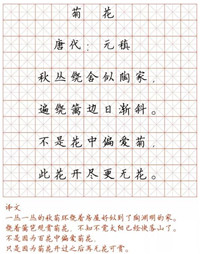 菊 花
唐代：元稹
秋丛绕舍似陶家，
遍绕篱边日渐斜。
不是花中偏爱菊，
此花开尽更无花。
译文
一丛一丛的秋菊环绕着房屋好似到了陶渊明的家。
绕着篱笆观赏菊花，不知不觉太阳已经快落山了。
不是因为百花中偏爱菊花，
只是因为菊花开过之后再无花可赏。